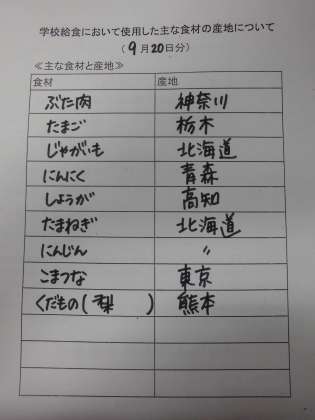 学校給食において使用した主な食材の産地について
（9月20日分）
≪主な食材と産地≫
食材 産地
ぶた肉 神奈川
たまご 栃木
じゃがいも 北海道
にんにく 青森
しょうが 高知
たまねぎ 北海道
にんじん 〃
こまつな 東京
くだもの(梨 ) 熊本